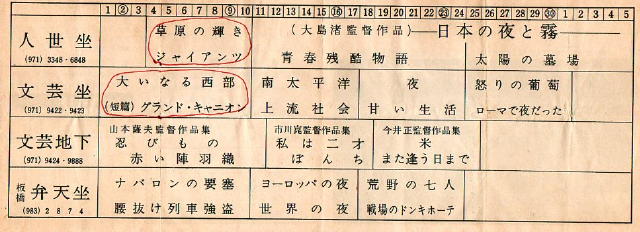 1 ② 3 4 5 6 7 8 ⑨ 10 11 12 13 14 15 ⑯ 17 18 19 20 21 22 ㉓ 24 25 26 27 28 29 ㉚ 1 2 3 4 5
人世坐
(971) 3348・6848
草原の輝き
ジャイアンツ
(大島渚監督作品) ―日本の夜と霧―
青春残酷物語
太陽の墓場
文芸坐
(971) 9422・9423
大いなる西部
(短篇) グランド・キャニオン
南太平洋
上流社会
夜
甘い生活
怒りの葡萄
ローマで夜だった
文芸地下
(971) 9424・9888
山本薩夫監督作品集
忍びもの
赤い陣羽織
市川崑監督作品集
私は二才
ぼんち
今井正監督作品集
米
また逢う日まで
板橋 弁天坐
(983) 2874
ナバロンの要塞
腰抜け列車強盗
ヨーロッパの夜
世界の夜
荒野の七人
戦場のドンキホーテ